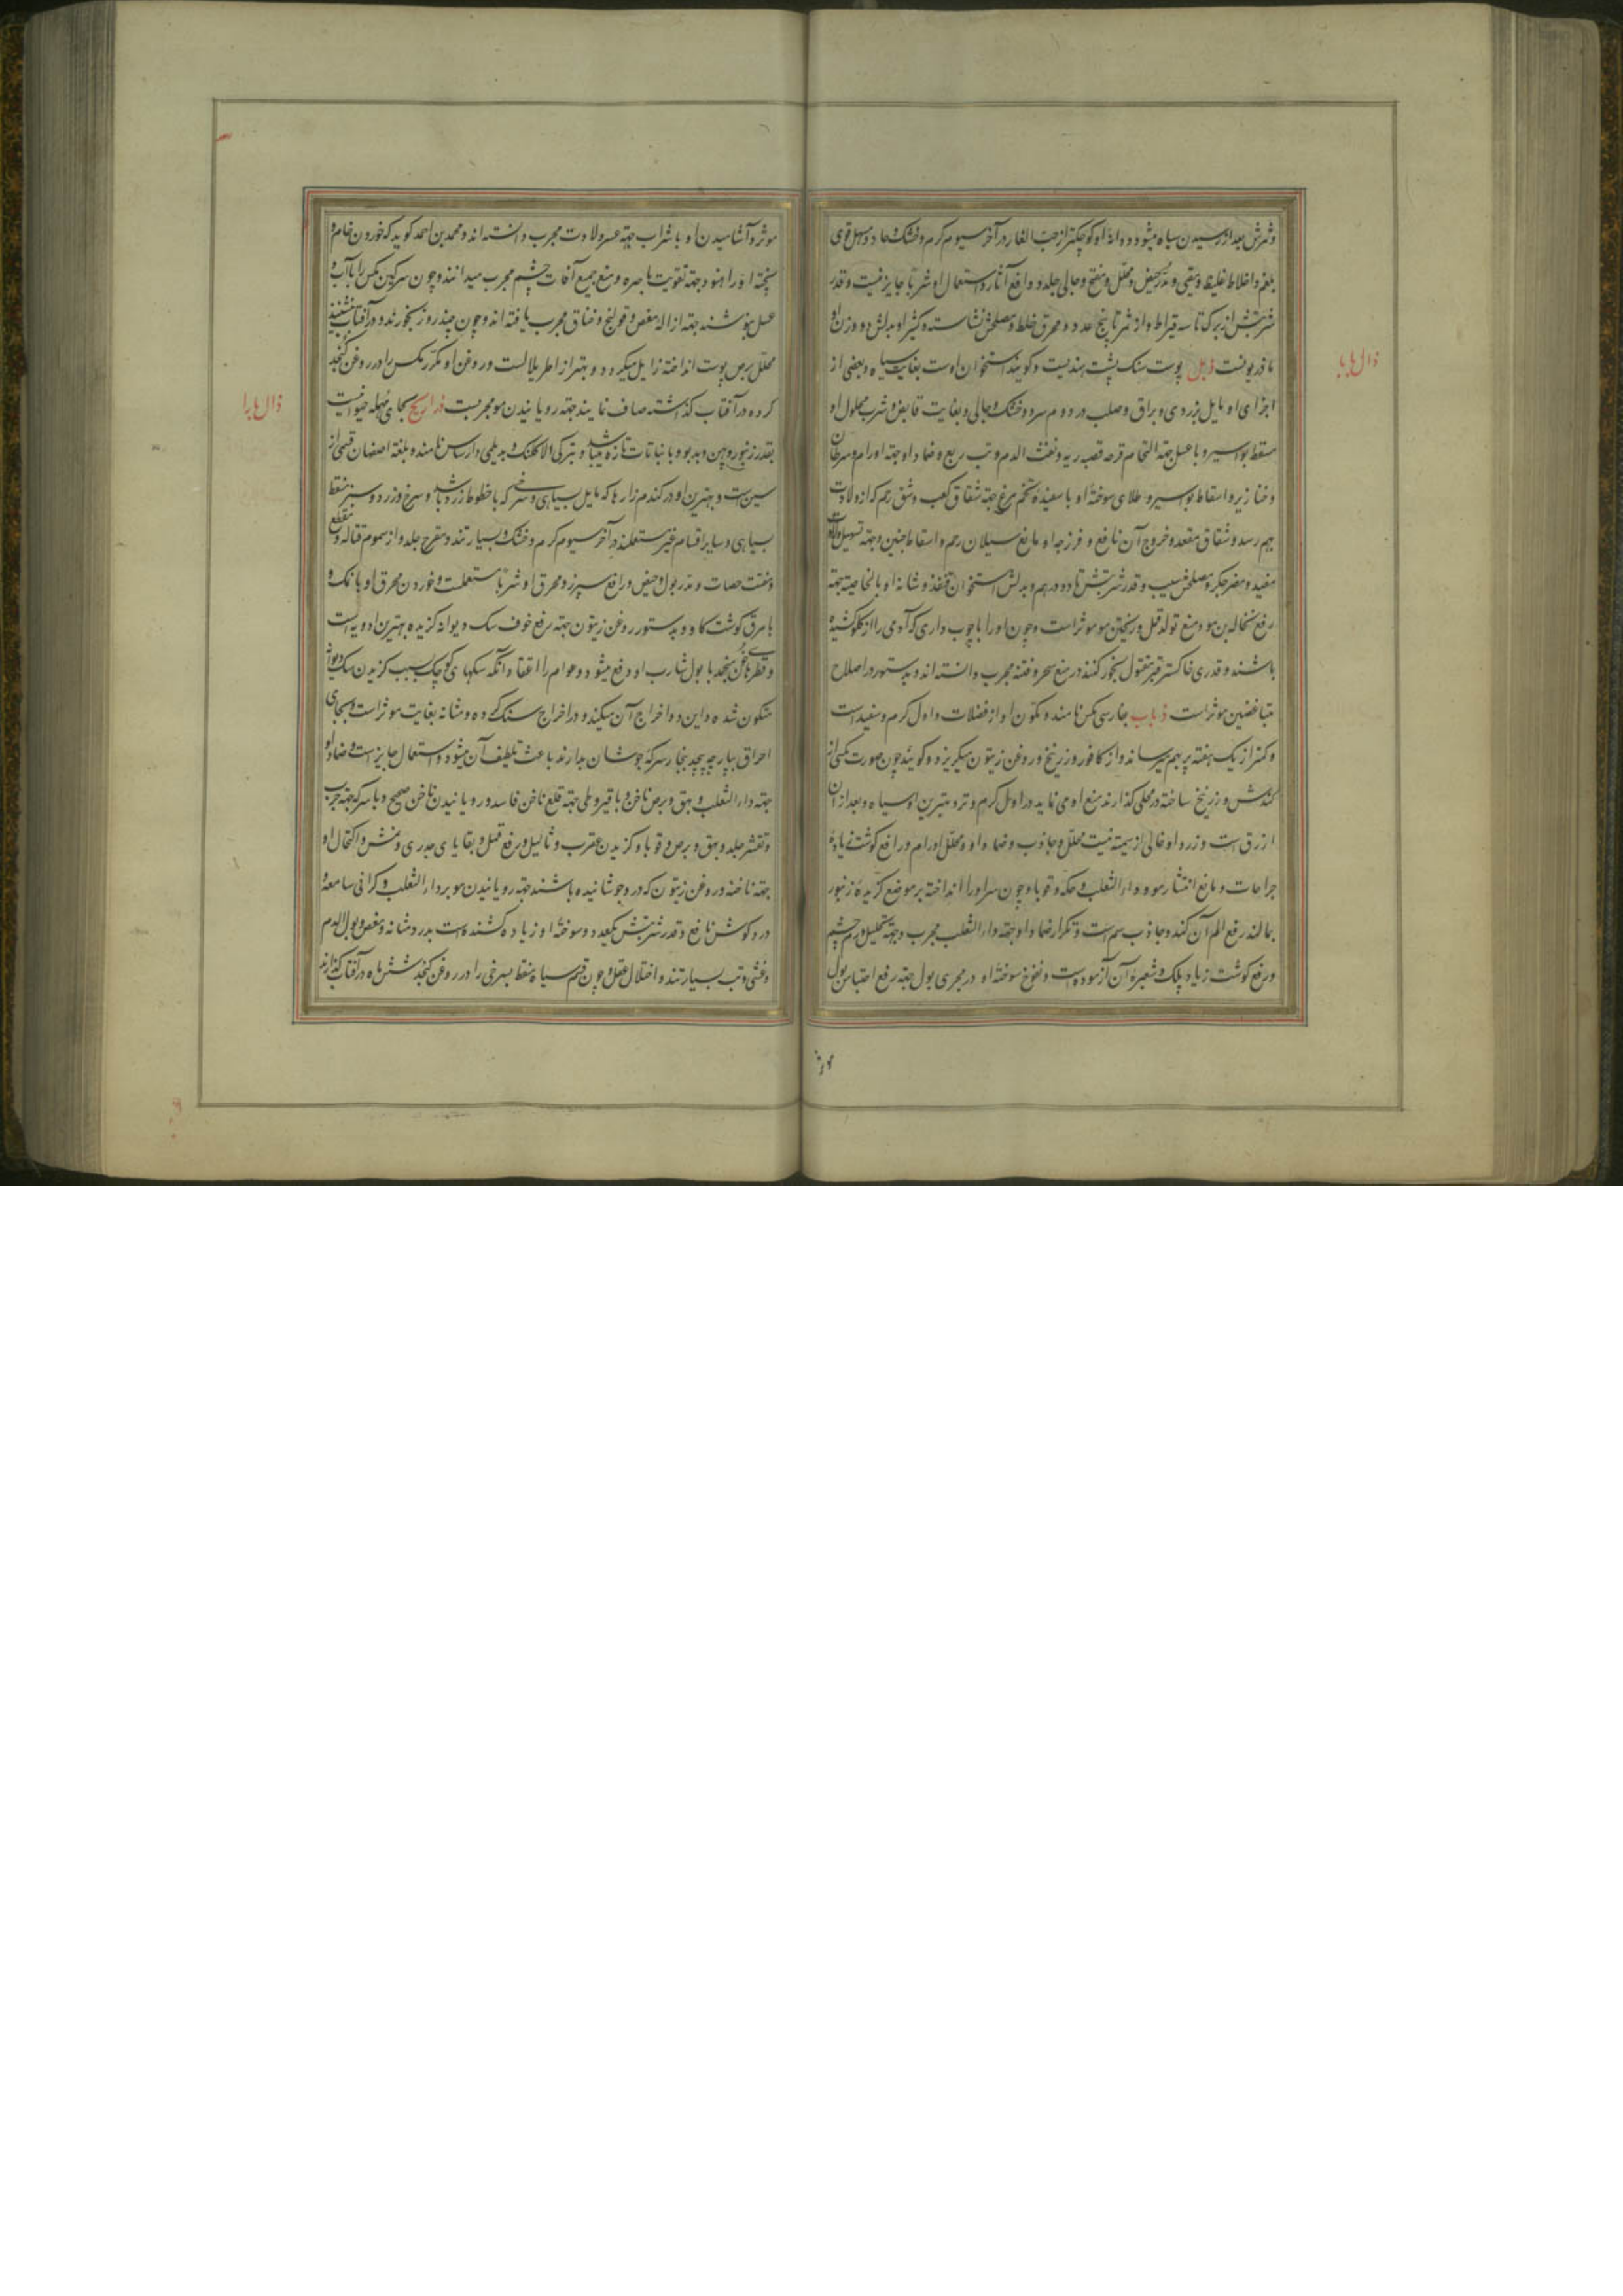 و ثمرش بعد از رسیدن سیاه میشود و دانهٔ او کوچکتر از حب الغار در آخر سیوم کرم و خشک و حاد و مسهل قوی
بلغم و اخلاط غلیظ و مقیی و مدر حیض و محلل و منضج و جالی جلد و رافع آثار و استعمال او شربا جایز نیست و قدر
شربتش از برک تا سه قیراط و از ثمر تا پنج عدد و محرق خلط و مصلحش نشاسته و کثیرا و بدلش دو وزن او
مافربونست ذبل پوست سنک پشت هندیست و کویند استخوان اوست بغایت سیاه و بعضی از
اجزای او مایل بزردی و براق و صلب در دوم سرد و خشک و جالی و بغایت قابض و شرب محلول او
مسقط بواسیر و با عسل جهة التحام قرحه قصبه ریه و نفث الدم و تب ربع و ضماد او جهة اورام و سرطان
و خنازیر و اسقاط بواسیر و طلای سوختهٔ او با سفیدهٔ تخم مرغ جهة شقاق کعب و شق رحم که از ولادت
بهم رسد و شقاق مقعد و خروج آن نافع و فرزجه او مانع سیلان رحم و اسقاط جنین و جهة تسهیل ولادت
مفید و مضر جکر و مصلحش سیب و قدر شربتش تا دو درهم و بدلش استخوان قنفذ و شانه او بالخاصیة جهة
رفع نخاله بن مو و منع تولد قمل و ریختن مو موثر است و چون او را با چوب داری که آدمی را از کلو کشیده
باشند و قدری خاکستر قبر مقتول بخور کنند در منع سحر و فتنه مجرب دانسته اند و بدستور در اصلاح
متباغضین موثر است ذباب بفارسی مکس نامند و تکون او از فضلات و اول کرم و سفید است
و کمتر از یک هفته پر بهم میرساند و از کافور و زرنیخ و روغن زیتون میکریزد و کویند چون صورت مکسی از
کندش و زرنیخ ساخته در محلی کذارند منع او می نماید در اول کرم و تر و بهترین او سیاه و بعد از آن
ازرق است و زرد او خالی از سمیت نیست محلل و جاذب و ضماد او محلل اورام و رافع کوشت زیاده
جراحات و مانع انتشار مو و داء الثعلب و حکه و قوبا و چون سر او را انداخته بر موضع کزیدهٔ زنبور
بمالند رفع الم آن کند و جاذب سم است و تکرار ضماد او جهة داء الثعلب مجرب و جهة تحلیل ورم چشم
و رفع کوشت زیاد پلک و شعیرهٔ آن آزموده است و نفوخ سوختهٔ او در مجری بول جهة رفع احتباس بول
ذال با با
موثر و آشامیدن او با شراب جهة عسر ولادت مجرب دانسته اند و محمد بن احمد کوید که خوردن خام و
پخته او را هنود جهة تقویت باصره و منع جمیع آفات چشم مجرب میدانند و چون سرکین مکس را با آب و
عسل بنوشند جهة ازاله مغص و قولنج و خناق مجرب یافته اند و چون چند روز بخورند و در آفتاب نشینند
محلل برص پوست انداخته زایل میکردد و بهتر از اطریلال است و روغن او مکرر مکس را در روغن کنجد
کرده در آفتاب کذاشته صاف نمایند جهة رویانیدن مو مجربست ذراریح بحای مهمله حیوانیست
بقدر زنبور و پهن و بدبو و با نباتات تازه میباشد و بترکی الاکلنک و بدیلمی دارساس نامند و بلغة اصفهان قسمی از
سین است و بهترین او در کندم زارها که مایل بسیاهی و سرخی که با خطوط زرد باشد و سرخ و زرد و سبز منقط
بسیاهی و سایر اقسام غیر مستعملند در آخر سیوم کرم و خشک و بسیار تند و مقرح جلد و از سموم قتاله و مقطع
و مفتت حصات و مدر بول و حیض و رافع سپرز و محرق او شربا مستعملست و خوردن محرق او با نمک و
با مرق کوشت کاو و بدستور روغن زیتون جهة رفع خوف سک دیوانه کزیده بهترین ادویه است
سکون شده و این دوا خراج آن میکند و در اخراج سنک کرده و مثانه بغایت موثر است و بجای
احراق بپارچه پیچیده ببخار سرکه جوشان بدارند باعث تلطیف آن میشود و استعمال جایز است و ضماد او
جهة داء الثعلب و بهق و برص ناخن و با قیروطی جهة قلع ناخن فاسد و رویانیدن ناخن صحیح و با سرکه جهة جرب
و تقشر جلد و بهق و برص و قوبا و کزیدن عقرب و ثالیل و رفع قمل و بقایای جدری و نمش و اکتحال او
جهة ناخنه و روغن زیتون که در و جوشانیده باشند جهة رویانیدن مو بر داء الثعلب و کرانی سامعه و
درد کوش نافع و قدر شربتش یکعدد و سوختهٔ او زیاده کشنده است بدرد مثانه و مغص و بول الدم
و غشی و تب بسیار تند و اختلال عقل و چون قسم سیاه منقط بسرخی را در روغن کنجد شش ماه در آفتاب کذارند
ذال با را